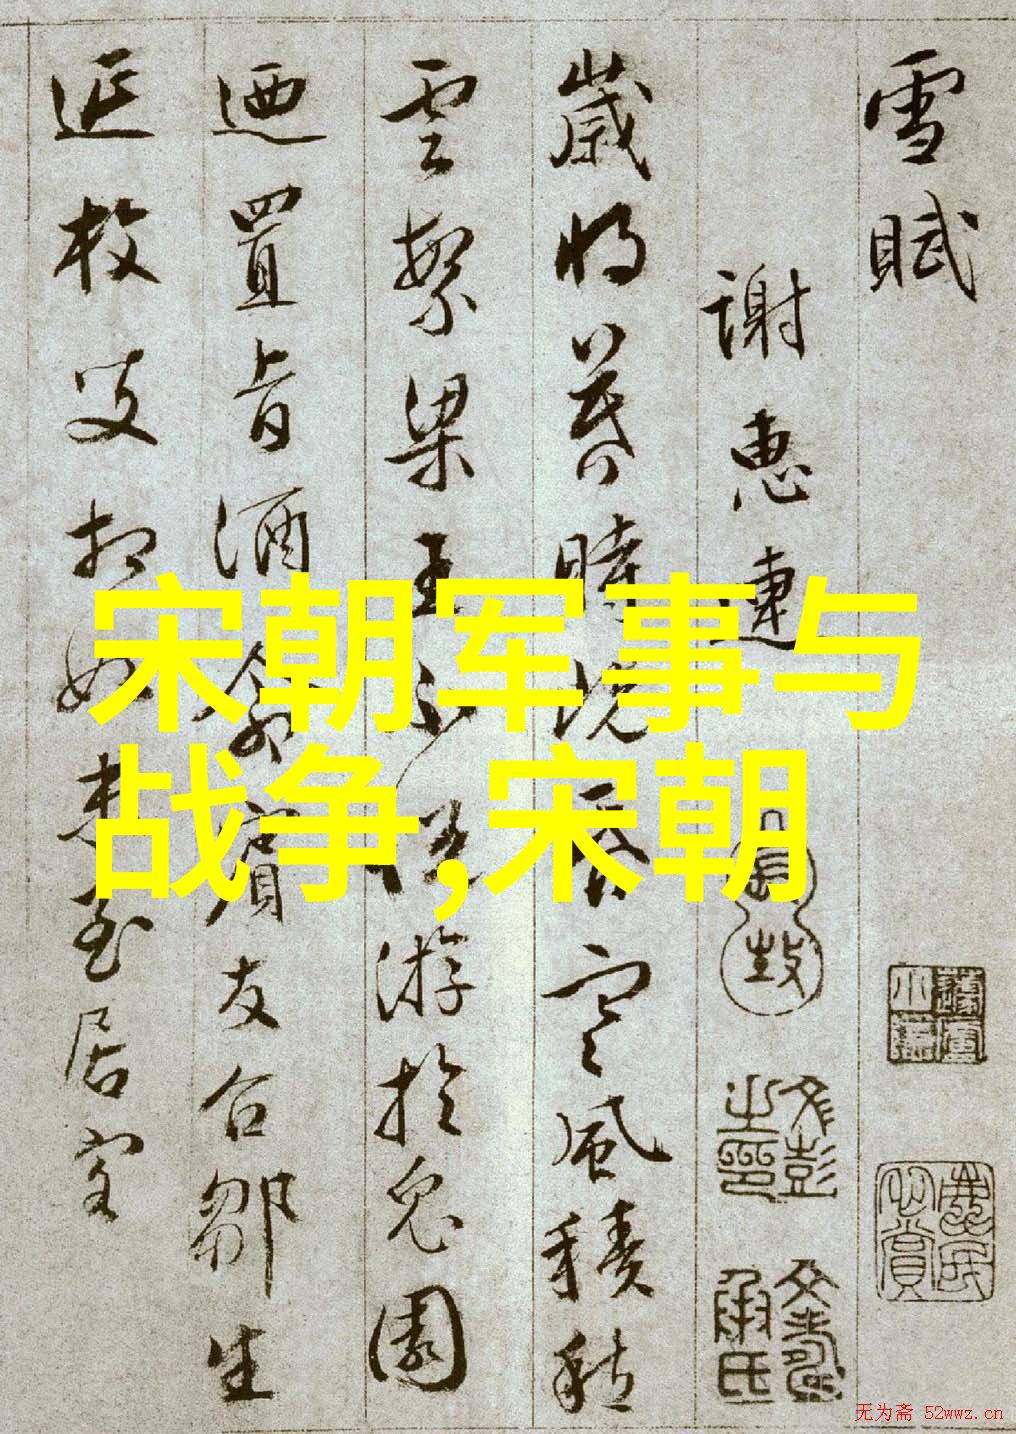 雪賦
謝惠連
歲將暮時既昏寒風積愁
雲繁梁王不悅游於兔園
迺置旨酒命賓友召鄒生
延枚叟相如末至居客
宋朝军事与
战争,宋朝
文彭之印
无为斋 52wwz.cn